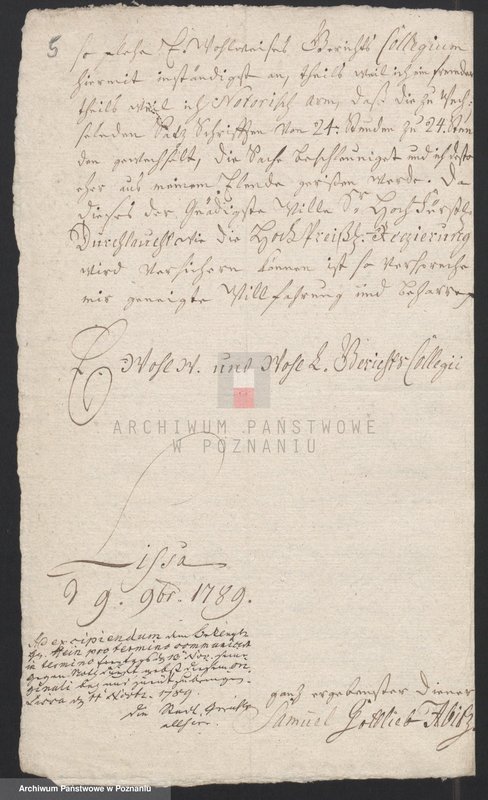 5
so flehe E. Wohlweises Gerichts Collegium
hiermit inständigst an, theils weil ich im fremden
theils weil ich Notorisch arm, daß die zu wech-
selnden Satz Schrifften von 24. Stunden zu 24. Stun
den gewechselt, die Sache beschleuniget und ich desto
eher aus meinem Elende gerißen werde. Da
dieses der Gnädigste Wille Sr Hochfürstl.
Durchlaucht wie die HochPreißl. Regierung
wird versichern können ist so verspreche
mir geneigte Willfahrung und beharre
E Wohl W. und Wohl L. Gerichts Collegii
ARCHIWUM PAŃSTWOWE
W POZNANIU
Lissa
d 9. 9br. 1789.
Ad excipiendum dem Beklagten
pro termino communicat
in termino
Lissa d 11 Novbr. 1789.
Die Stadt Gerichte
allhier.
ganz ergebenster Diener
Samuel Gottlieb
Archiwum Państwowe w Poznaniu